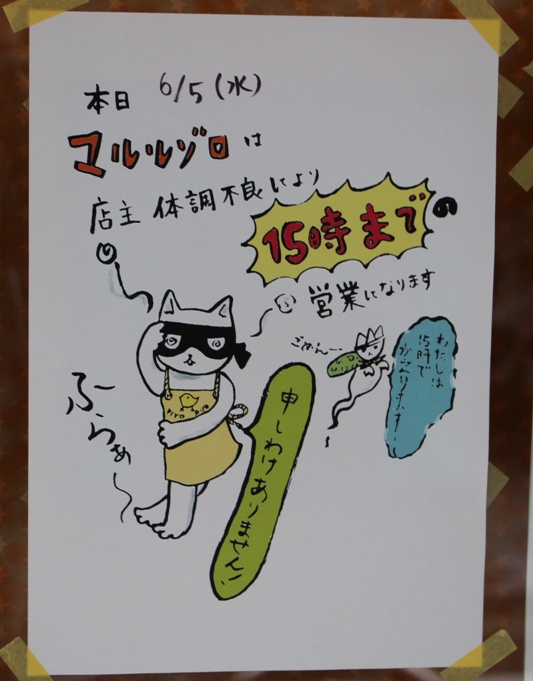 本日 6/5(水)
マルルゾロは
店主 体調不良により
15時までの
営業になります
ごめんー
わたしは
15時で
がんばります!
ふらぁ〜
申しわけありません!